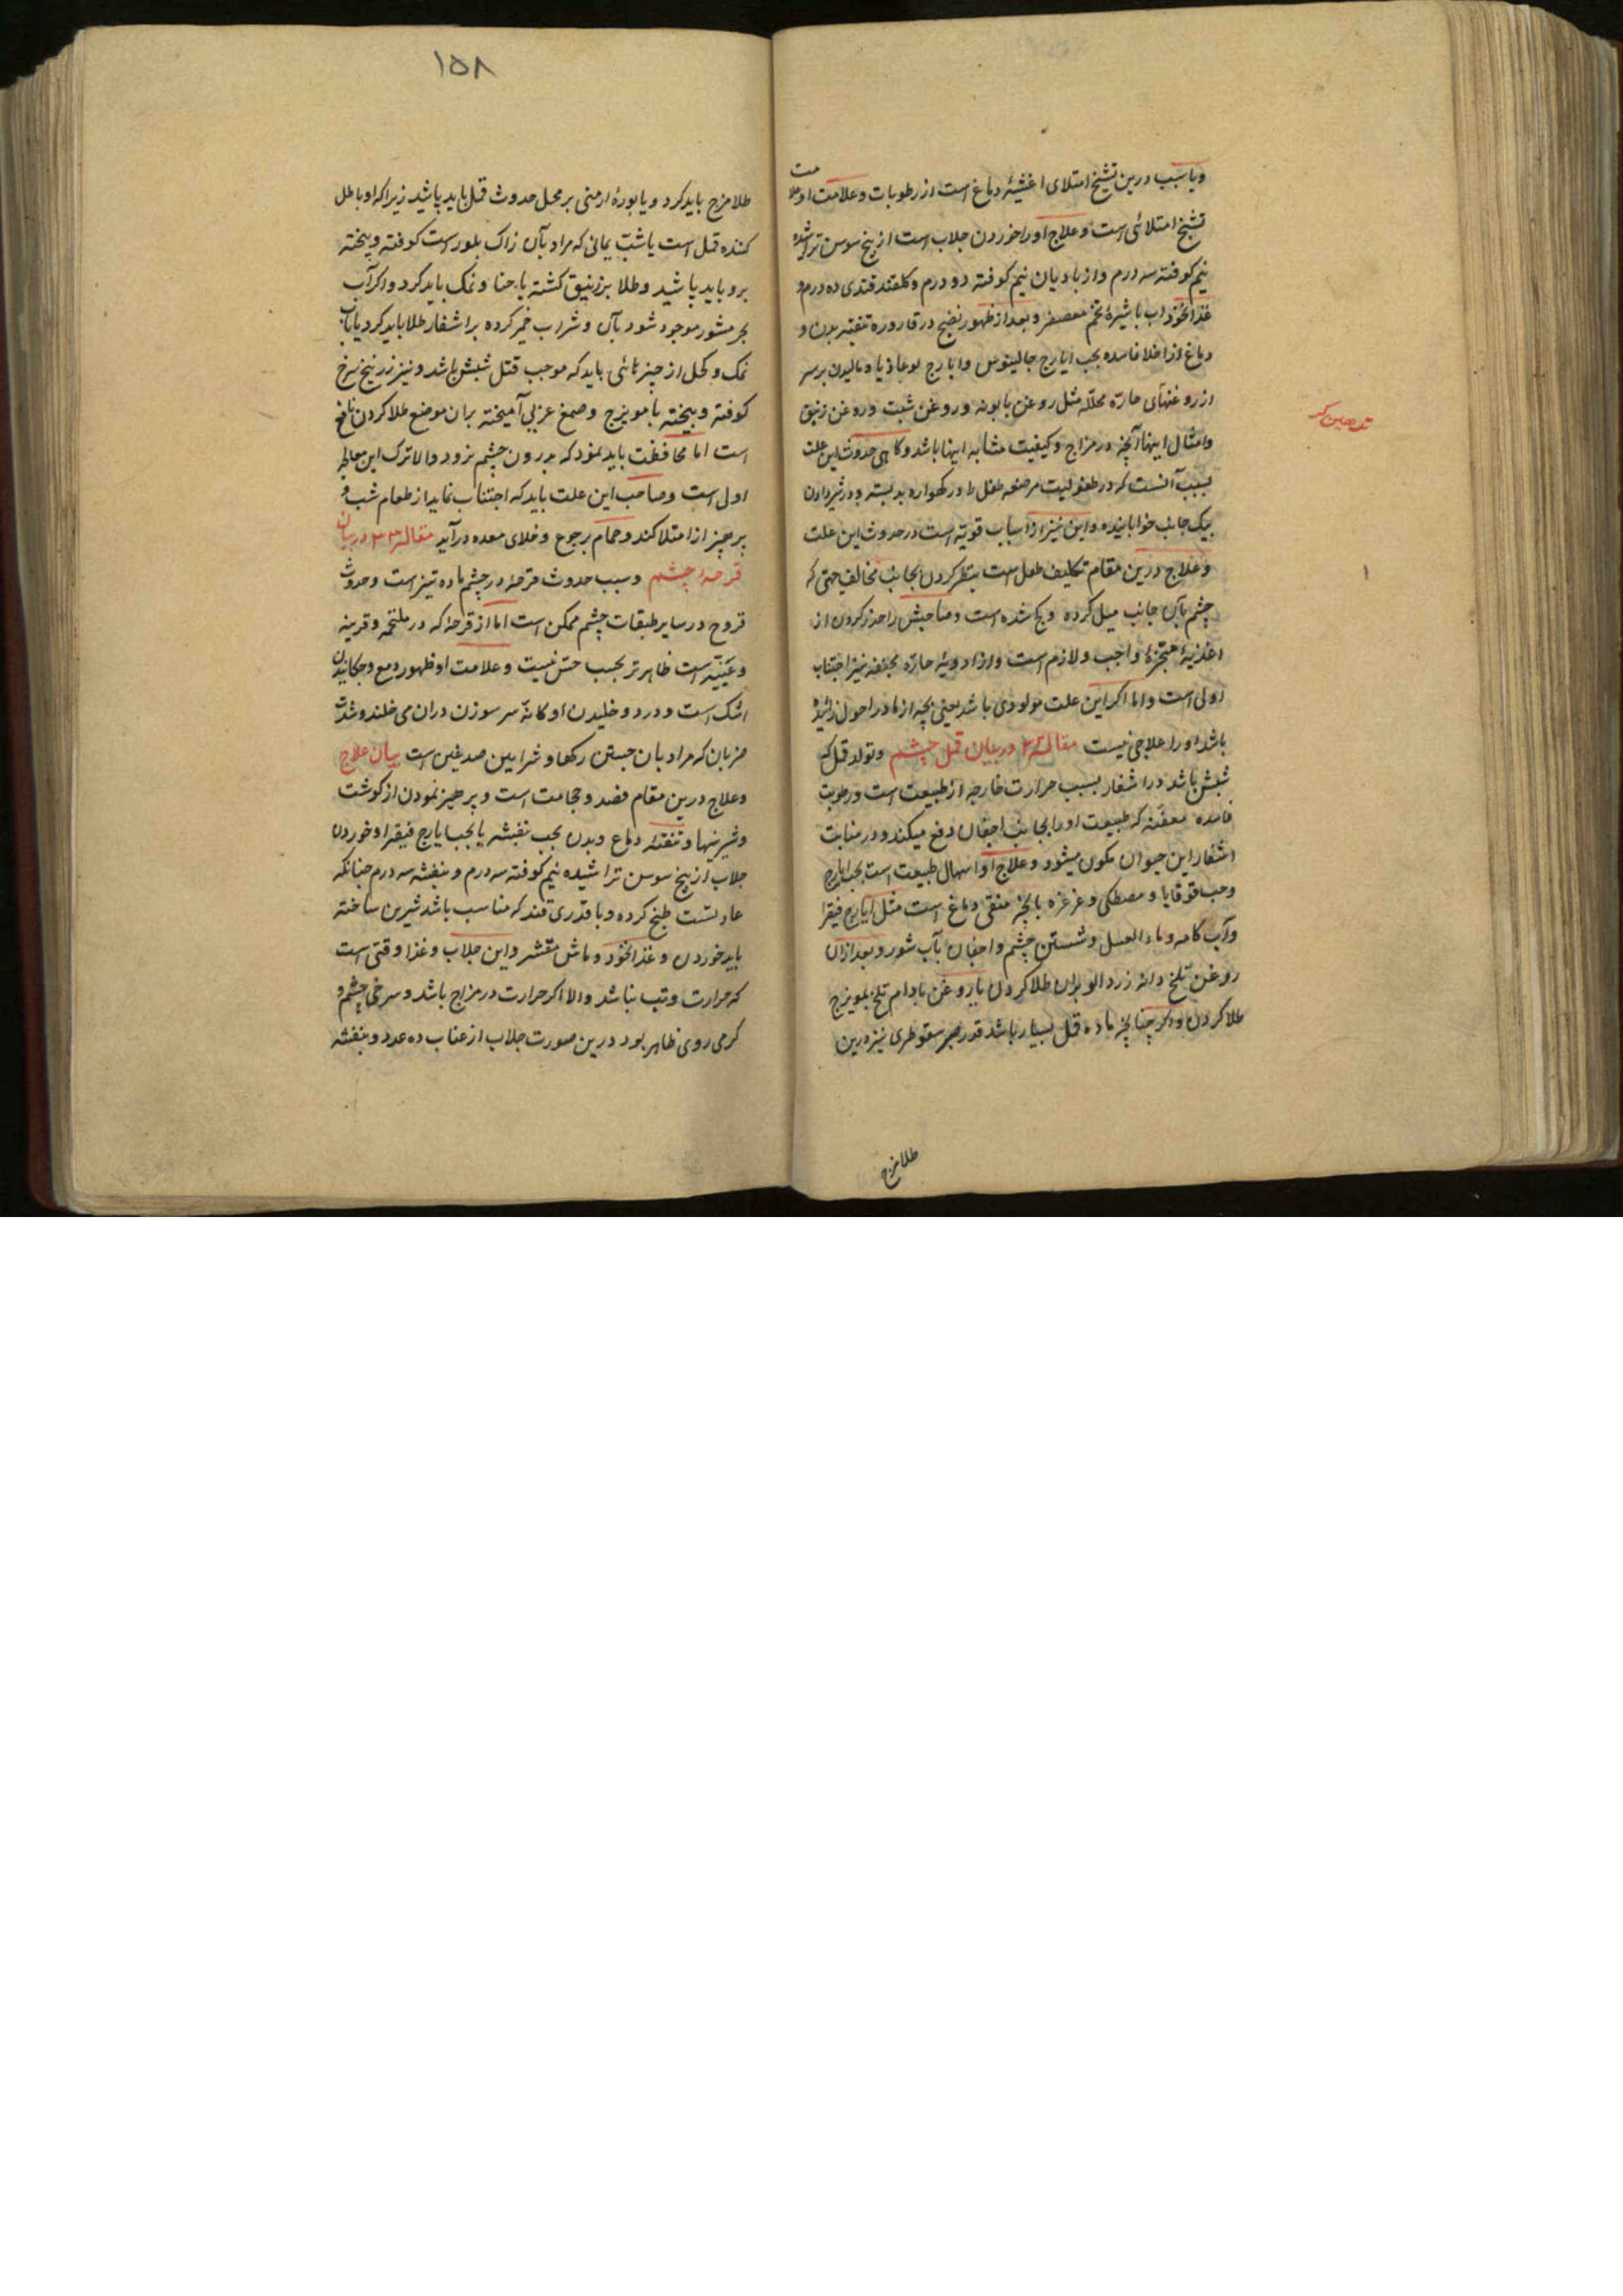 وباسبب درین تشنج امتلای اغشیهٔ دماغ است از رطوبات و علامت او علامت
تشنج امتلائی است و علاج او را خوردن جلاب است از بیخ سوسن تراشیده
نیم کوفته سه درم و از بادیان نیم کوفته دو درم و گلقند قندی ده درم و
غذا نخوداب با شیرهٔ تخم معصفر و بعد از ظهور نضج در قاروره تنقیه بدن و
دماغ از اخلاط فاسده بحب ایارج جالینوس و ایارج لوغاذیا و مالیدن بر سر
از روغنهای حاره محلله مثل روغن بابونه و روغن شبت و روغن زنبق
و امثال اینها آنچه در مزاج و کیفیت مشابه اینها باشد و کاهی حدوث این علت
بسبب آنست که در طفولیت مرضعه طفل را در کهواره بد بسته و در شیر دادن
بیک جانب خوابانیده و این نیز از اسباب قویه است در حدوث این علت
و علاج درین مقام تکلیف طفل است بنظر کردن بجانب مخالف حتی که
چشم بآن جانب میل کرده و کج شده است و صاحبش را حذر کردن از
اغذیهٔ مبخره واجب و لازم است و از ادویهٔ حاره مجففه نیز اجتناب
اولی است و اما اکر این علت مولودی باشد یعنی بچه از مادر احول زائیده
باشد او را علاجی نیست مقالهٔ ۳۲ در بیان قمل چشم و تولد قمل که
شپش باشد در اشفار بسبب حرارت خارجه از طبیعت است و رطوبت
فاسده معفنه که طبیعت او را بجانب اجفان دفع میکند و در منابت
اشفار این حیوان مکون میشود و علاج او اسهال طبیعت است بحب ایارج
و حب قوقایا و مصطکی و غرغره بآنچه منقی دماغ است مثل ایارج فیقرا
و آب کامه و ماء العسل و شستن چشم و اجفان بآب شور و بعد از آن
روغن تلخ دانه زردالو بران طلا کردن یا روغن بادام تلخ بمویزج
طلا کردن و اکر چنانچه ماده قمل بسیار باشد قدر صبر سقوطری نیز درین
طلا مزج
۱۵۸
طلا مزج باید کرد و یا بورهٔ ارمنی بر محل حدوث قمل باید پاشید زیرا که او باطل
کننده قمل است یا شب یمانی که مراد بآن زاک بلور است کوفته و بیخته
برو باید پاشید و طلا بزیبق کشته با حنا و نمک باید کرد و اکر آب
بحر مشور موجود شود بآن و شراب خمر کرده بر اشفار طلا باید کرد یا بآب
نمک و کحل از چیزهائی باید که موجب قتل شپش باشد و نیز زرنیخ سرخ
کوفته و بیخته با مویزج و صمغ عربی آمیخته بران موضع طلا کردن نافع
است اما محافظت باید نمود که بدرون چشم نرود والا ترک این معالجه
اولی است و صاحب این علت باید که اجتناب نماید از طعام شب و
پرهیز از امتلا کند و حمام برجوع و خلای معده درآید مقالهٔ ۳۳ در بیان
قرحهٔ چشم و سبب حدوث قرحهٔ در چشم ماده تیز است و حدوث
قروح در سایر طبقات چشم ممکن است اما از قرحهٔ که در ملتحمه و قرنیه
و عنبیه است ظاهرتر بحسب حس نیست و علامت او ظهور دمع و چکانیدن
اشک است و درد و خلیدن او کانّه سر سوزن دران می خلند و شدت
ضربان که مراد بان جستن رکها و شرایین صدغین است بیان علاج
و علاج درین مقام فصد و حجامت است و پرهیز نمودن از کوشت
و شیرینیها و تنقیهٔ دماغ و بدن بحب بنفشه یا بحب ایارج فیقرا و خوردن
جلاب از بیخ سوسن تراشیده نیم کوفته سه درم و بنفشه سه درم چنانکه
عادتست طبخ کرده و با قدری قند که مناسب باشد شیرین ساخته
باید خوردن و غذا نخود و ماش مقشر و این جلاب و غذا وقتی است
که حرارت و تب نباشد والا اکر حرارت در مزاج باشد و سرخی چشم و
کرمی روی ظاهر بود درین صورت جلاب از عناب ده عدد و بنفشه